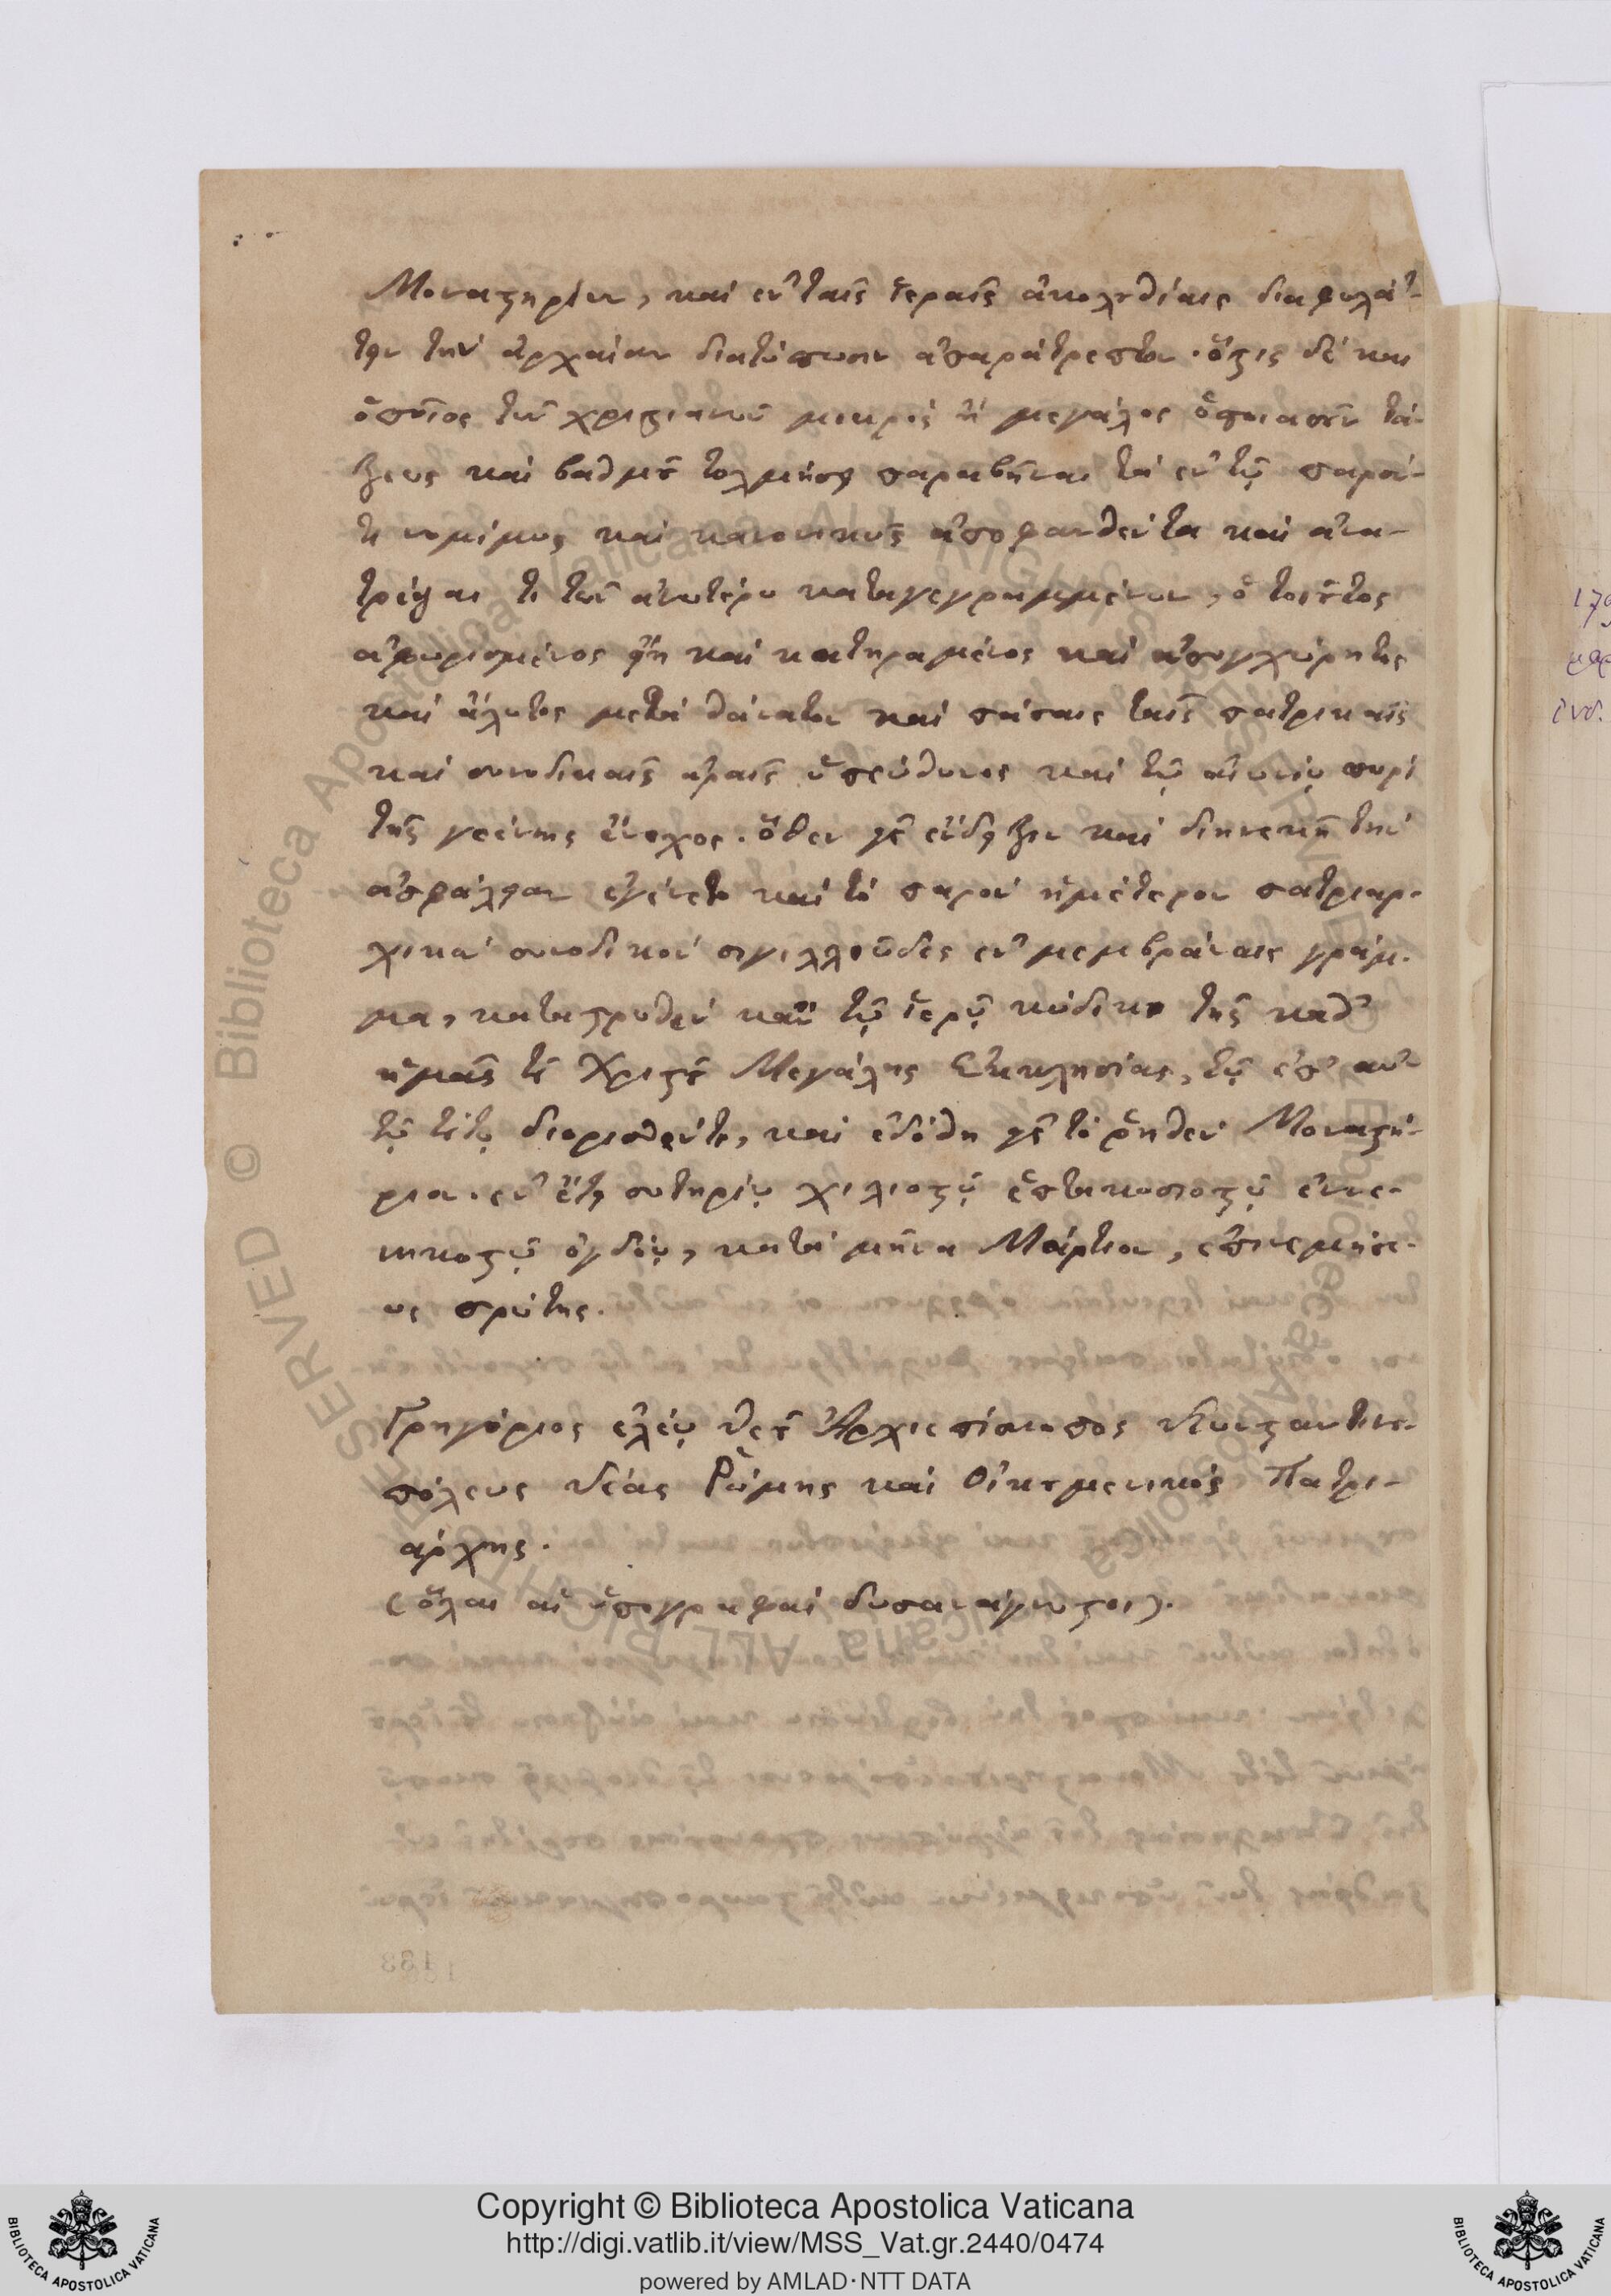 Μοναστηρίων, καὶ ἐν ταῖς ἱεραῖς ἀκολουθίαις διαφυλάτ-
τειν τὴν ἀρχαίαν διατύπωσιν ἀπαράτρεπτον. ὅστις δὲ καὶ
ὁποῖος τῶν χριστιανῶν μικρὸς ἢ μεγάλος ὁποιασοῦν τά-
ξεως καὶ βαθμοῦ τολμήσῃ παραβῆναι τὰ ἐν τῷ παρόν-
τι νομίμως καὶ κανονικῶς ἀποφανθέντα καὶ ἀνα-
τρέψαι τι τῶν ἀνωτέρω καταγεγραμμένων, ὁ τοιοῦτος
ἀφωρισμένος εἴη καὶ κατηραμένος καὶ ἀσυγχώρητος
καὶ ἄλυτος μετὰ θάνατον καὶ πάσαις ταῖς πατρικαῖς
καὶ συνοδικαῖς ἀραῖς ὑπεύθυνος καὶ τῷ αἰωνίῳ πυρὶ
τῆς γεέννης ἔνοχος. ὅθεν εἰς ἔνδειξιν καὶ διηνεκῆ τὴν
ἀσφάλειαν ἐγένετο καὶ τὸ παρὸν ἡμέτερον πατριαρ-
χικὸν συνοδικὸν σιγιλλιῶδες ἐν μεμβράναις γράμ-
μα, καταστρωθὲν κἂν τῷ ἱερῷ κώδικι τῆς καθ'
ἡμᾶς τοῦ Χριστοῦ Μεγάλης Ἐκκλησίας, τῷ ἐπ' αὐ-
τῷ τούτῳ διορισθέντι, καὶ ἐδόθη εἰς τὸ ῥηθὲν Μοναστή-
ριον. ἐν ἔτει σωτηρίῳ χιλιοστῷ ἑπτακοσιοστῷ ἐννε-
νηκοστῷ ὀγδόῳ, κατὰ μῆνα Μάρτιον, ἐπινεμήσε-
ως πρώτης.
Γρηγόριος ἐλέῳ Θεοῦ Ἀρχιεπίσκοπος Κωνσταντινου-
πόλεως Νέας Ῥώμης καὶ Οἰκουμενικὸς Πατρι-
άρχης.
(ὅλαι αἱ ὑπογραφαὶ δυσανάγνωστοι).
179
ἰνδ.
Biblioteca Apostolica Vaticana ALL RIGHTS RESERVED ©
Copyright © Biblioteca Apostolica Vaticana
http://digi.vatlib.it/view/MSS_Vat.gr.2440/0474
powered by AMLAD·NTT DATA
BIBLIOTECA APOSTOLICA VATICANA
BIBLIOTECA APOSTOLICA VATICANA